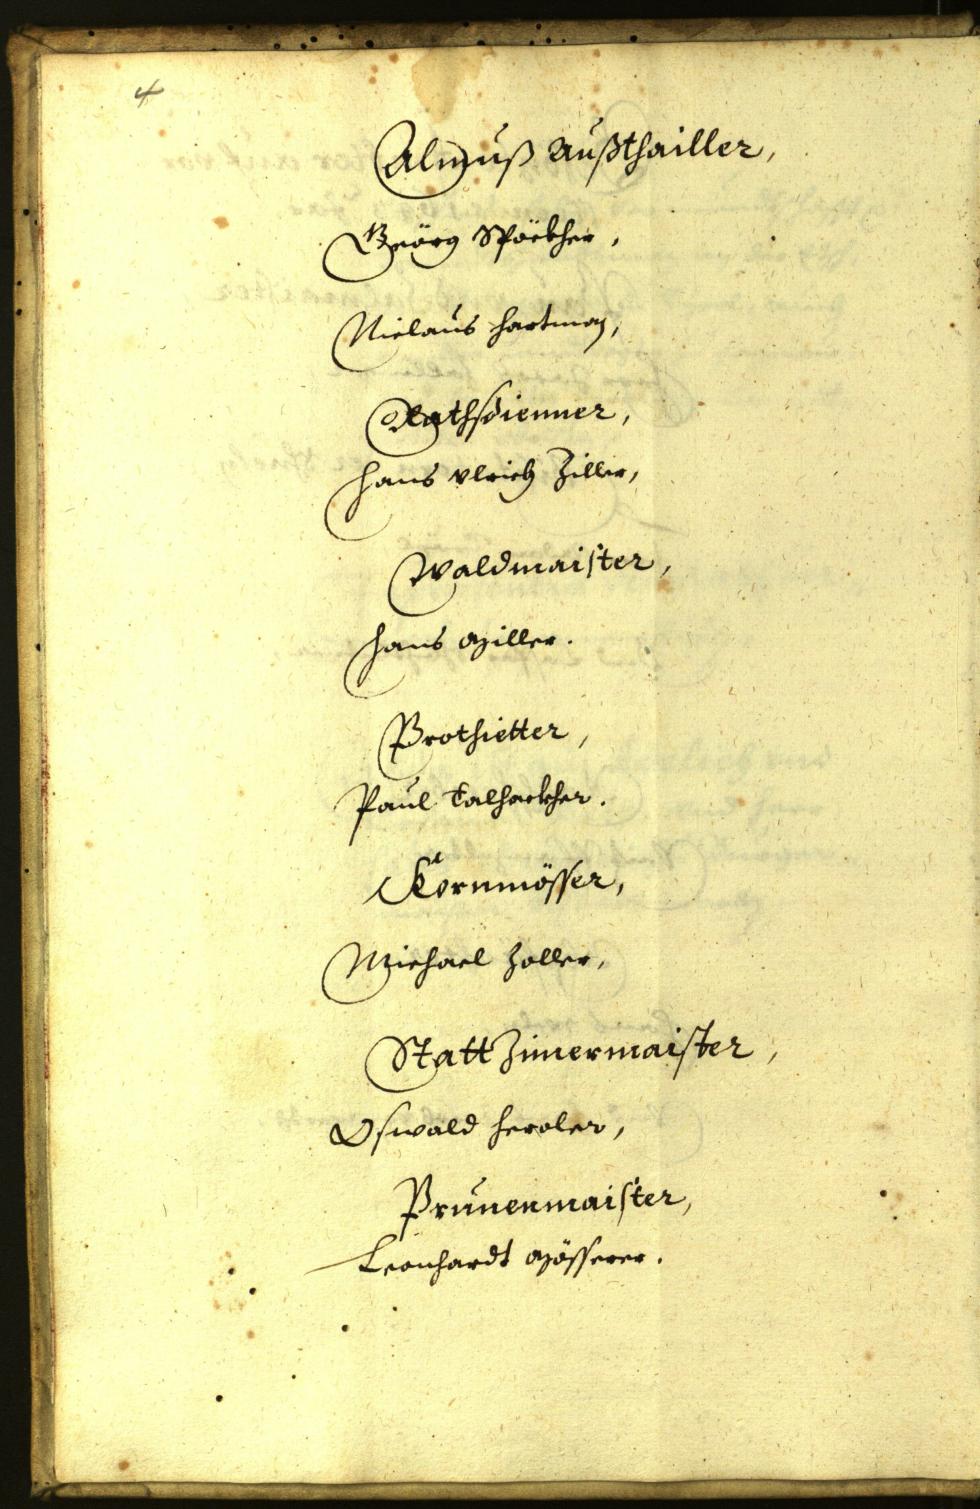 4
Almuß Außthailler,
Geörg Spöckher,
Niclaus Hartman,
Rathsdienner,
Hans Vlrich Ziller,
Waldmaister,
Hans Miller.
Brothietter,
Paul Talhackher.
Kornmösser,
Michael Zoller,
Statt Zimermaister,
Oswald Heroler,
Prunenmaister,
Leonhardt Mösserer.